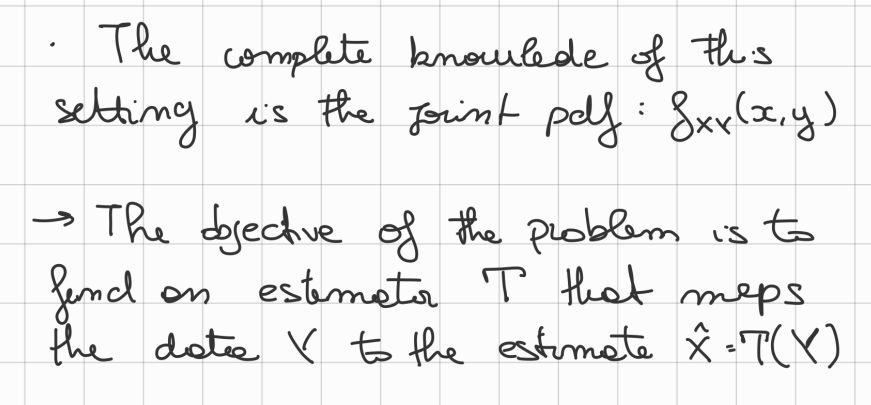 · The complete knowlede of this
setting is the joint pdf : f_XY(x,y)
→ The objective of the problem is to
find an estimator T that maps
the data Y to the estimate X̂ = T(Y)